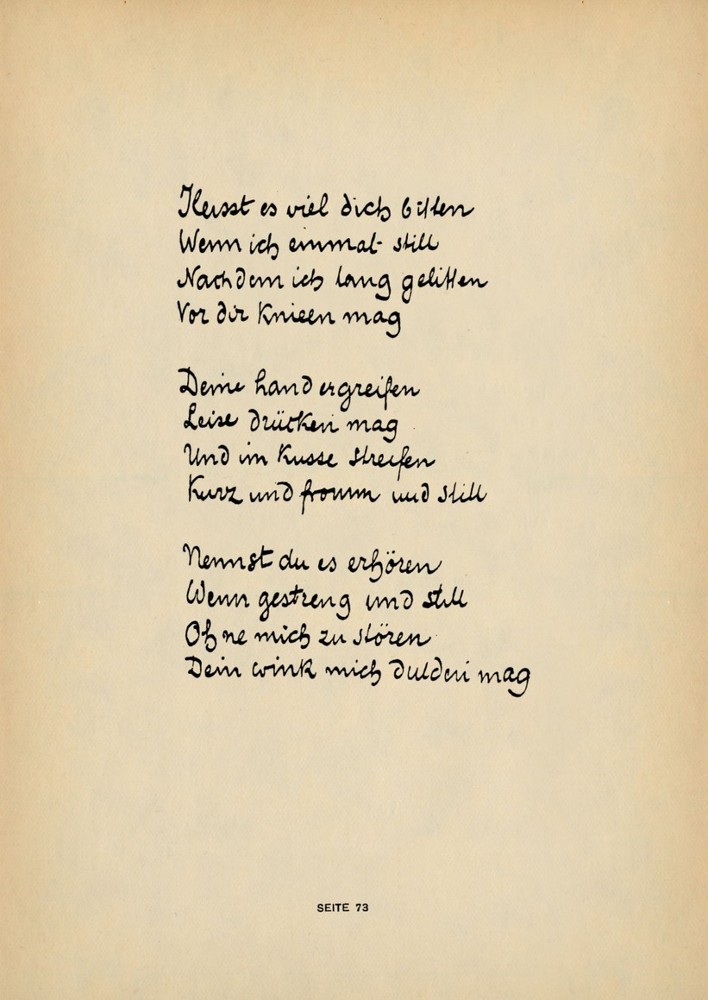 Heisst es viel dich bitten
Wenn ich einmal still
Nachdem ich lang gelitten
Vor dir knieen mag
Deine hand ergreifen
Leise drücken mag
Und im Kusse streifen
Kurz und fromm und still
Nennst du es erhören
Wenn gestreng und still
Ohne mich zu stören
Dein wink mich dulden mag
SEITE 73